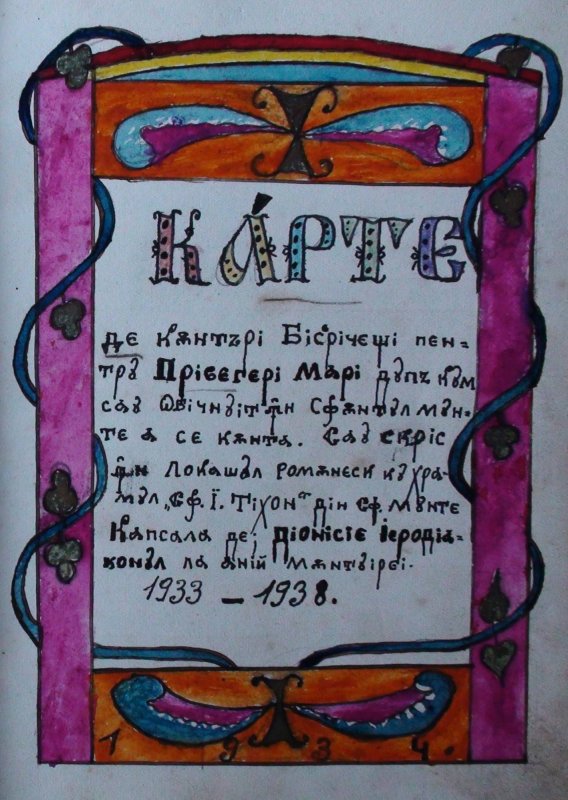 КА́РТЕ
де кѫнтърі Бісрічещі пен=
трꙋ Прівегері Марі дꙋпъ кꙋм
саꙋ Ѡбічнꙋіт ꙟн Сфѫнтꙋл Мꙋн-
те а се кѫнта. Саꙋ скріс
ꙟн Локашꙋл ромѫнеск кꙋ хра-
мꙋл „Сф. Ї. Тіхон“ дін сф. Мꙋнте
Капсала де; Діонісіе Іеродіа=
конꙋл ла аній Мѫнтꙋірєі.
1933 – 1938.
1 9 3 4.